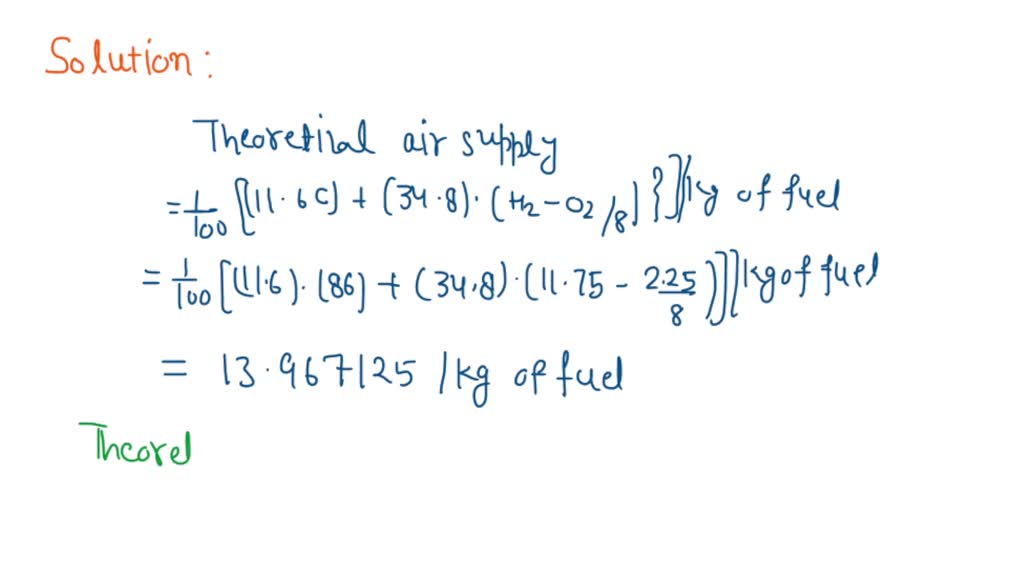 Solution:
Theoretiral air supply
= 1/100 [(11.6C) + (34.8)·(H2 - O2/8)}]/kg of fuel
= 1/100 [(11.6)·(86) + (34.8)·(11.75 - 2.25/8)]]/kg of fuel
= 13.967125 /kg of fuel
Theorel